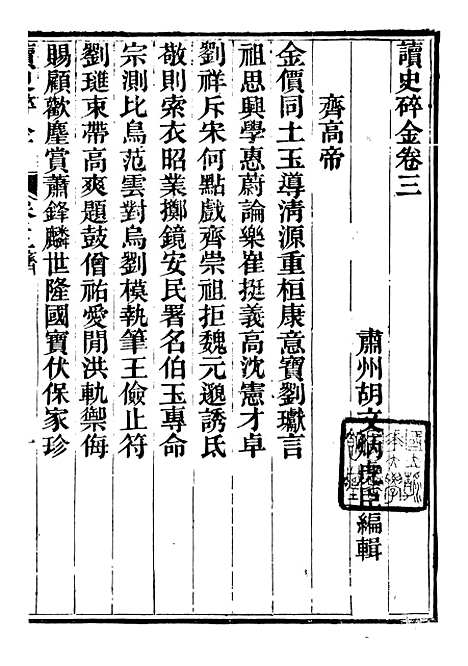 讀史碎金卷三
肅州胡文炳虎臣編輯
齊高帝
金價同土玉導淸源重桓康意寶劉瓛言
祖思興學惠蔚論樂崔挺義高沈憲才卓
劉祥斥宋何點戲齊崇祖拒魏元邈誘氐
敬則索衣昭業擲鏡安民署名伯玉專命
宗測比鳥范雲對烏劉模執筆王儉止符
劉璡束帶高爽題鼓僧祐愛閒洪軌禦侮
賜顧歡麈賞蕭鋒麟世隆國寶伏保家珍
讀史碎金